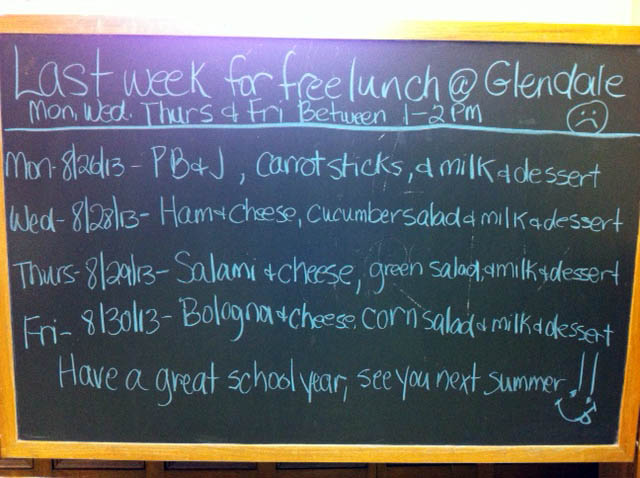 Last week for free lunch @ Glendale
Mon, Wed. Thurs & Fri Between 1-2 pm
Mon- 8/26/13 - PB&J, carrot sticks, & milk & dessert
Wed- 8/28/13- Ham & cheese, cucumber salad & milk & dessert
Thurs- 8/29/13- Salami & cheese, green salad, & milk & dessert
Fri- 8/30/13- Bologna & cheese, corn salad & milk & dessert
Have a great school year, see you next summer!!